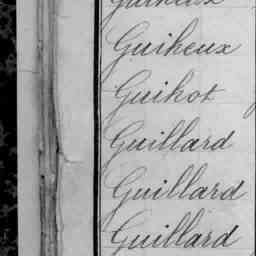 Guiheux
Guiheux
Guihot
Guillard
Guillard
Guillard